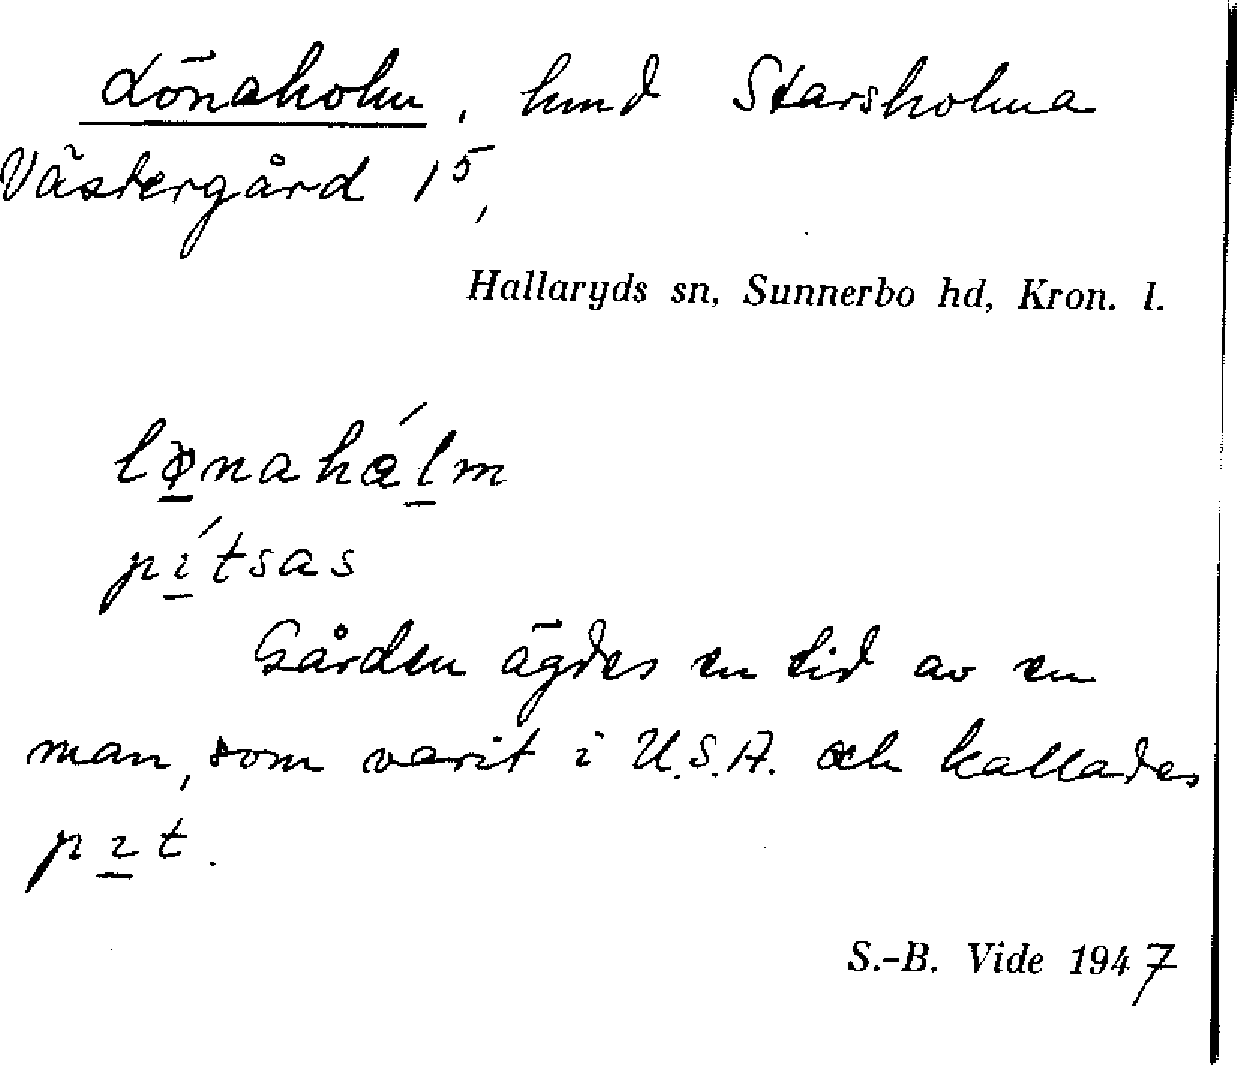 Lönaholm, hmd Starsholma
Västergård 1⁵,
Hallaryds sn, Sunnerbo hd, Kron. l.
lø̱naháḻm
pí̱tsas
Gården ägdes en tid av en
man, som varit i U.S.A. och kallades
pı̱t.
S.-B. Vide 1947